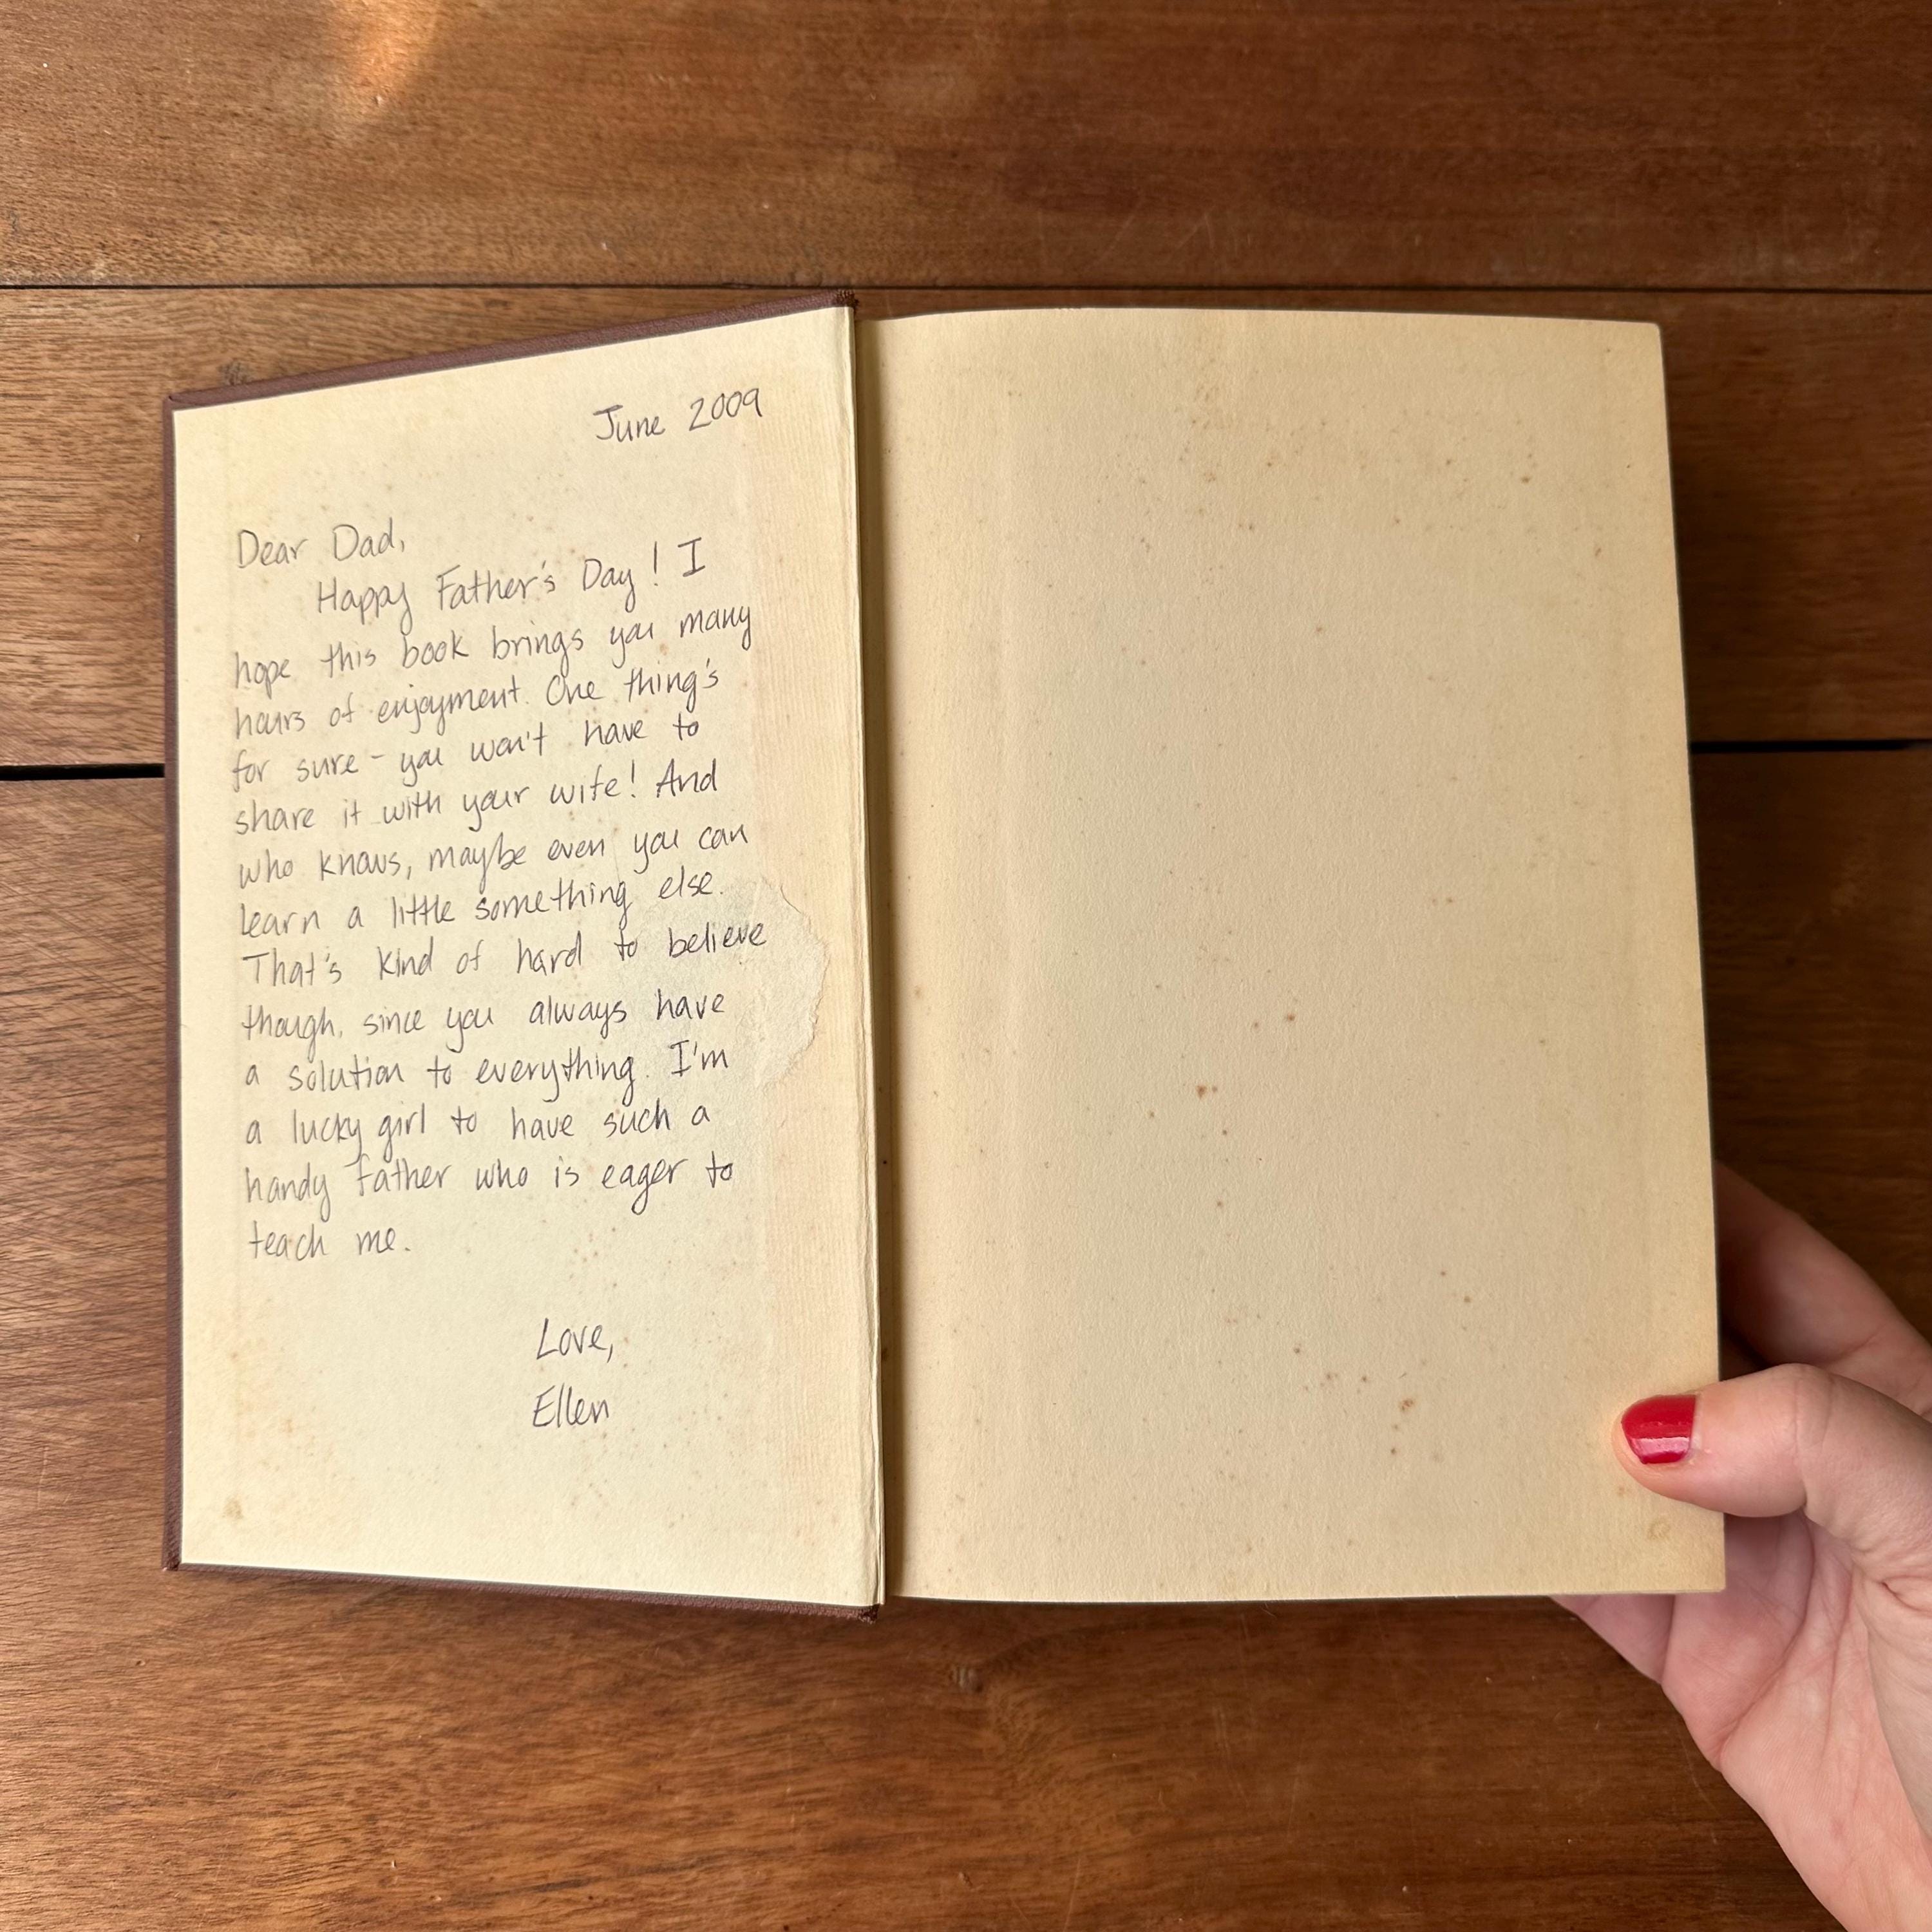 June 2009
Dear Dad,
Happy Father's Day! I
hope this book brings you many
hours of enjoyment. One thing's
for sure - you won't have to
share it with your wife! And
who knows, maybe even you can
learn a little something else.
That's kind of hard to believe
though, since you always have
a solution to everything. I'm
a lucky girl to have such a
handy father who is eager to
teach me.
Love,
Ellen